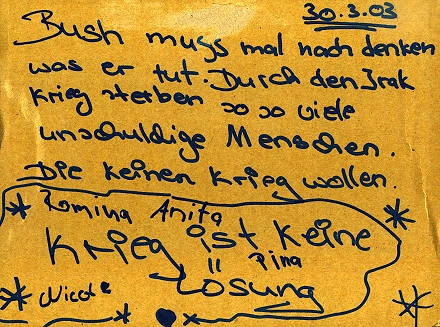 30.3.03
Bush muss mal nach denken
was er tut. Durch den Irak
Krieg sterben so so viele
unschuldige Menschen.
Die keinen Krieg wollen.
Romina Anita
Krieg ist keine
Pina
Lösung
Nicole